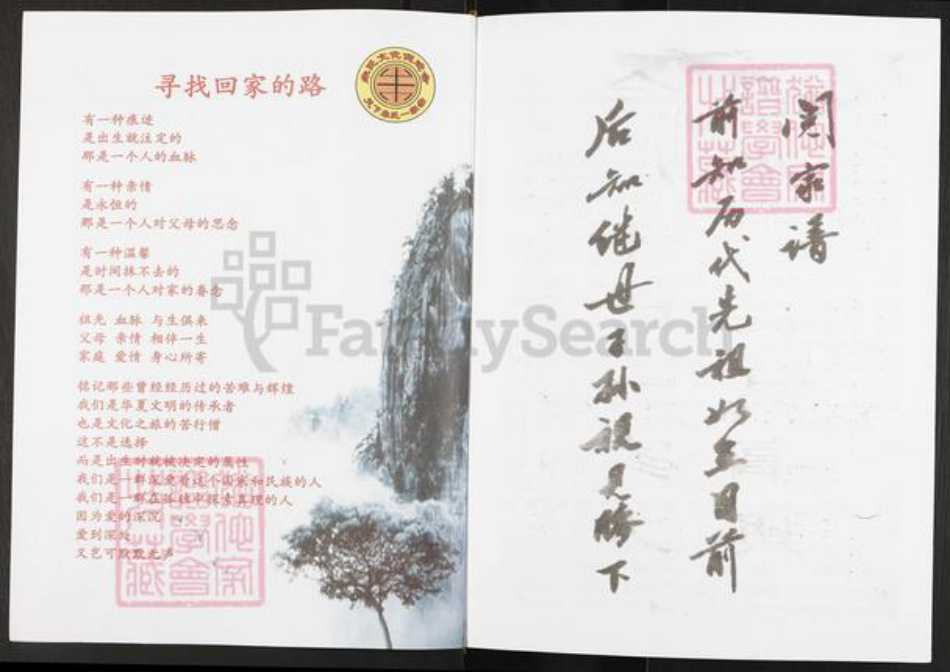 寻找回家的路
有一种痕迹
是出生就注定的
那是一个人的血脉
有一种亲情
是永恒的
那是一个人对父母的思念
有一种温馨
是时间抹不去的
那是一个人对家的眷恋
祖先 血脉 与生俱来
父母 亲情 相伴一生
家庭 爱情 身心所寄
铭记那些曾经经历过的苦难与辉煌
我们是华夏文明的传承者
也是文化之旅的苦行僧
这不是选择
而是出生时就被决定的属性
我们是一群深爱着这个国家和民族的人
我们是一群在孤独中探索真理的人
因为爱的深沉
爱到深处
又岂可默默无声
FamilySearch
阅家谱
前知历代先祖如在目前
后知继世子孙视见膝下
譜學會